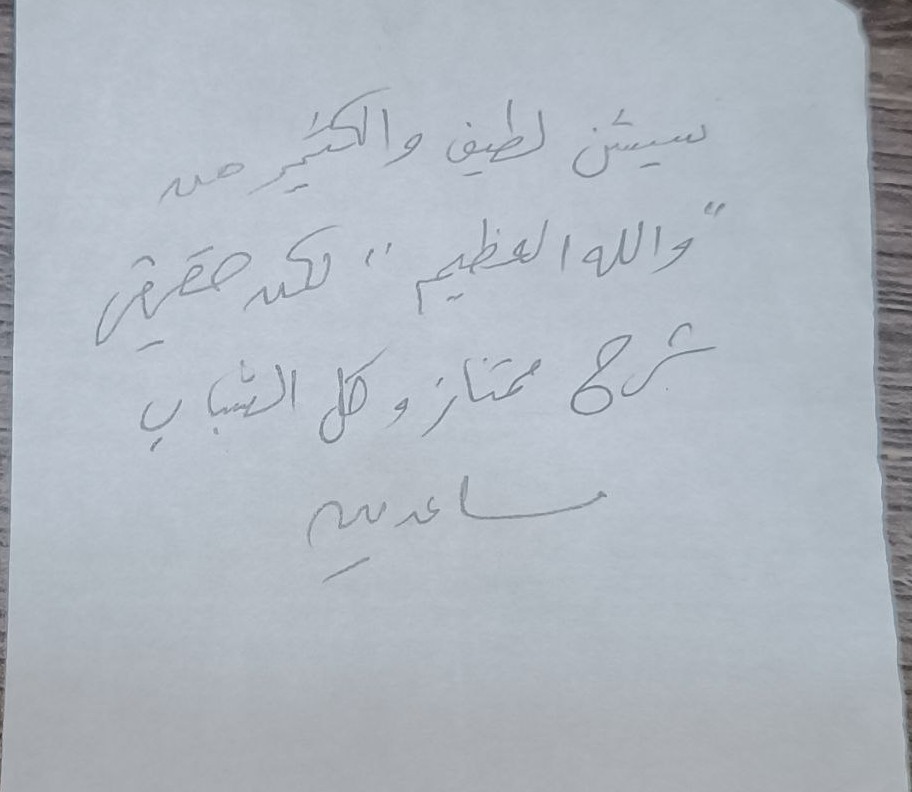 سيشن لطيف والكثير من
"والله العظيم" لكن حقيقي
شرح ممتاز وكل الشباب
مساعدين